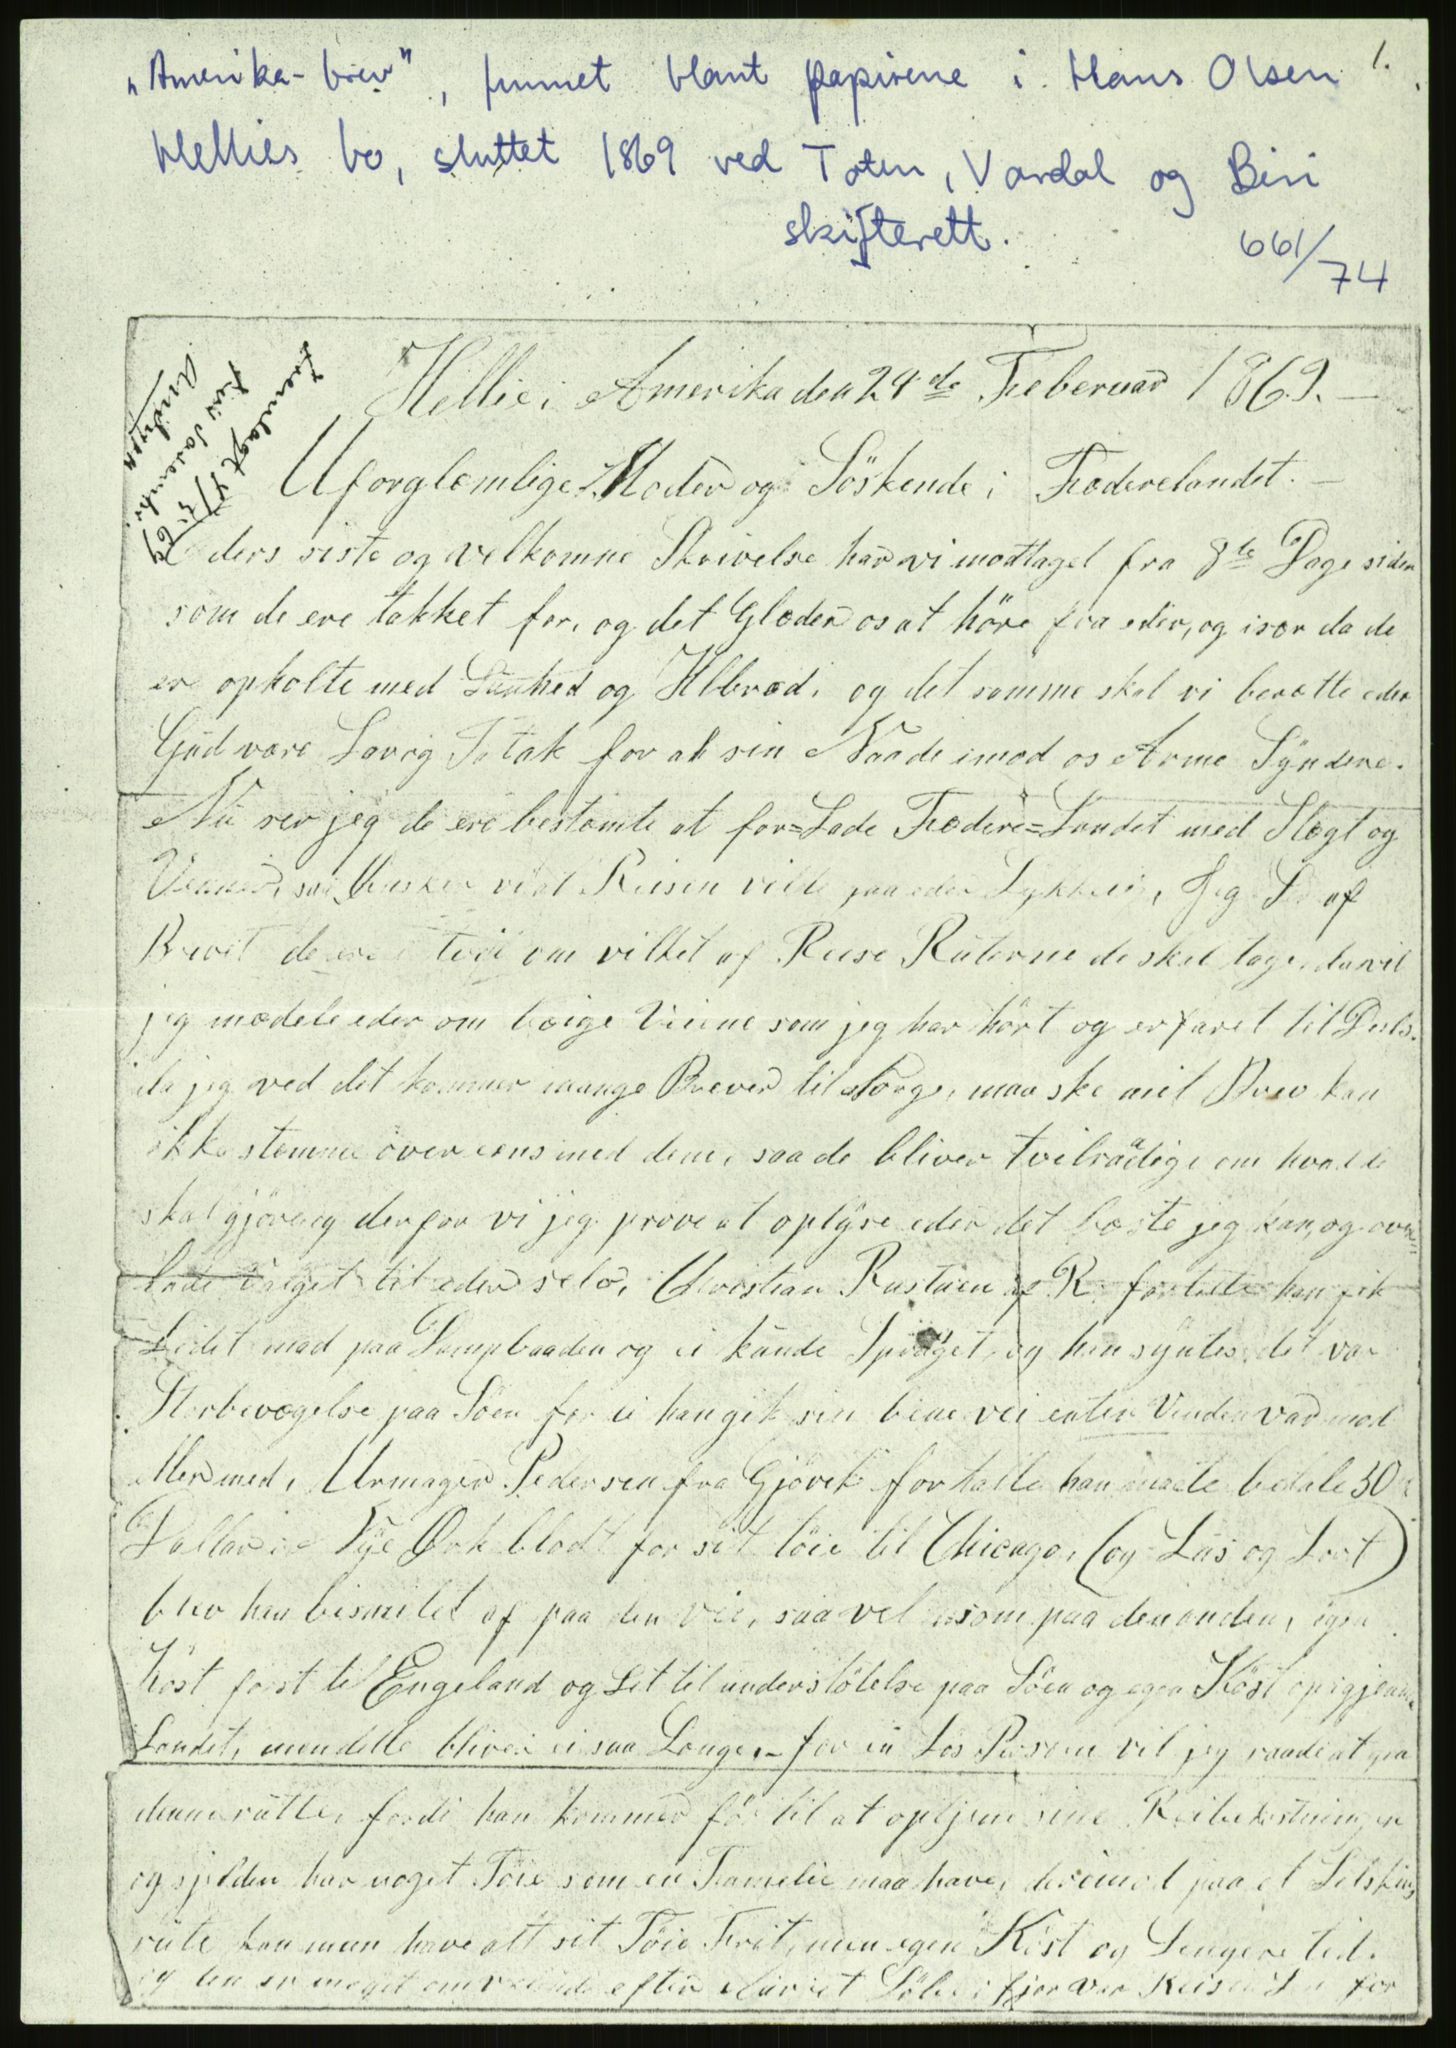 1.
"Amerika-brev", funnet blant papirene i Hans Olsen
Hellies bo, sluttet 1869 ved Toten, Vardal og Biri
skifterett.
661/74
Fremlagt 4/5 69
Hellie i Amerika den 24de Feberuar 1869.
Uforglemlige Moder og Söskende i Fæderelandet.
Eders siste og velkomne Skrivelse har vi modtaget fra 8te Dage siden
som de ere takket for, og det Glæder os at höre fra eder, og især da de
er opholte med Sunhed og Helbred, og det samme skal vi berætte eder
Gud være Lov og Tak for al sin Naade imod os Arme Syndere.
Nu ser jeg de ere bestemte at for=Lade Fædere=Landet med Slegt og
Venner, saa Önsker vi at Reisen ville paa eder Lykkes, Jeg Se af
Brevet de ere i tvil om vilket af Reise Ruterne de skal tage, da vil
jeg mædele eder om begge Viene som jeg har hört og erfaret til Dels.
da jeg ved det kommer mange Brever til Norge, maa ske mit Brev kan
ikke stemme över eens med dem, saa de bliver tvilraadige om hvad de
skal gjöre og derfor vi jeg pröve at oplyse eder det beste jeg kan, og over=
lade valget til eder selv, Christian Rustuen af R. fortalte han fik
Lidet mad paa Dampbaaden og ei kunde Sproget, og han syntes det var
Storbevegelse paa Söen for ei han gik sin bene vei enten Vinden var mod
eller med, Urmager Pedersen fra Gjövik fortalte han maate betale 30
Dallar i Nye Ork blodt for sit töie til Chicago, (og Lus og Lort)
blev han bismitet af paa den vei, saavel som paa den anden, egen
Köst först til Engeland og Let til understötelse paa Söen og egen Köst op igjennem
Landet, men dette bliver ei saa Længe, - for en Lös Person vil jeg raade at gaa
denne rutte, fordi han kommer för til at optjene sine Reisbekostninger
og sjelden har noget Töie som en Familie maa have, derimod paa et Seilskibs
rute kan man have alt sit Töie Frit, men egen Köst og Lengere tid.
og den er meget omvexlende efter Aaret i fjor var Reisen for